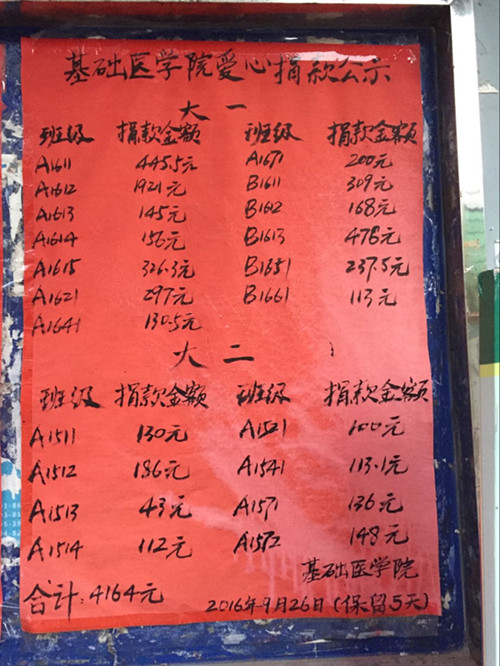 基础医学院爱心捐款公示
大一
班级 捐款金额 班级 捐款金额
A1611 445.5元 A1671 200元
A1612 1921元 B1611 309元
A1613 145元 B1612 168元
A1614 156元 B1613 478元
A1615 326.3元 B1651 237.5元
A1621 297元 B1661 113元
A1641 130.5元
大二
班级 捐款金额 班级 捐款金额
A1511 130元 A1521 100元
A1512 186元 A1541 113.1元
A1513 43元 A1571 136元
A1514 112元 A1572 148元
基础医学院
合计:4164元 2016年9月26日(保留5天)